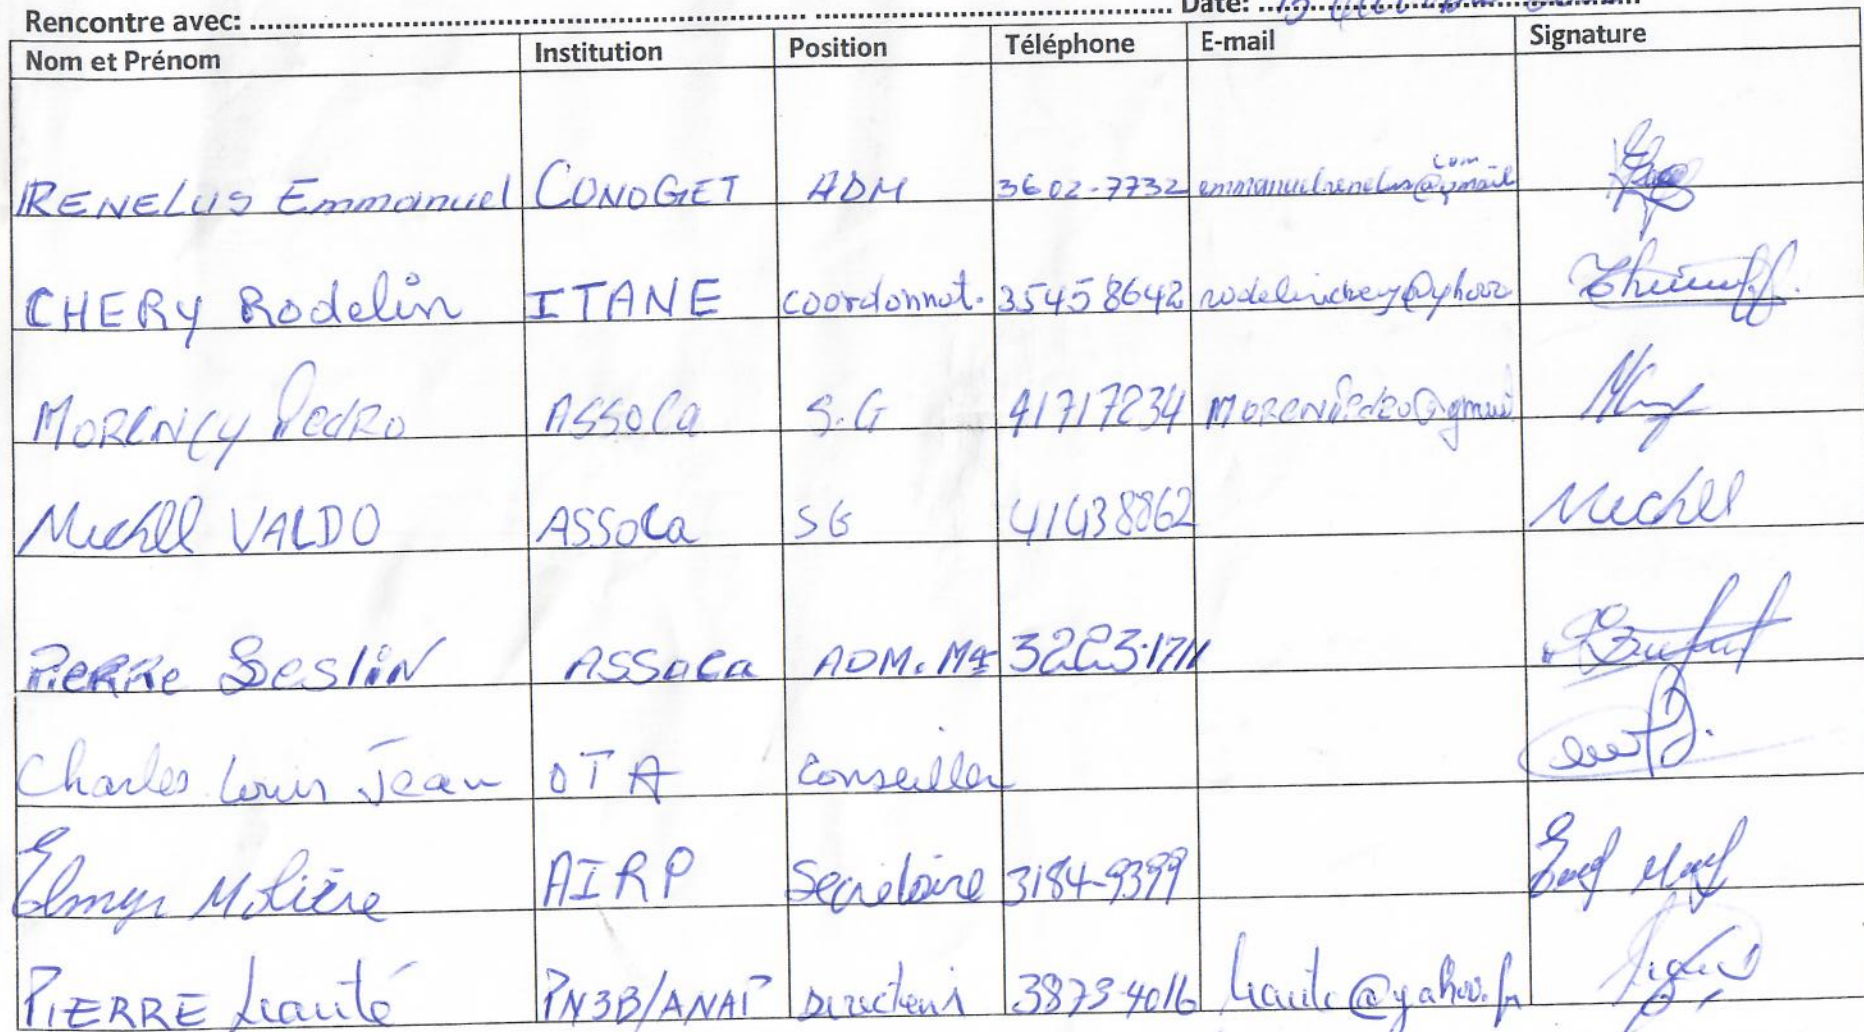 Rencontre avec: ........................................ Date: 13
Nom et Prénom Institution Position Téléphone E-mail Signature
RENELUS Emmanuel CONOGET ADM 3602-7732 emmanuelrenelus@gmail com
CHERY Rodelin ITANE Coordonnat. 35458642 rodelinchery@yhoo
MORENCY Pedro ASSOCa S.G 41717234 MORENPedro@gmail
Michel VALDO ASSOCa SG 41438862 Michel
PieRRe Seslin ASSOCa ADM. 3223-1711
Charles Louis Jean OTA Conseiller
Elmyr Molière AIRP Secrétaire 3184-9399
PIERRE Liauté PN3B/ANAP Directeur 3873-4016 liaute@yahoo.fr